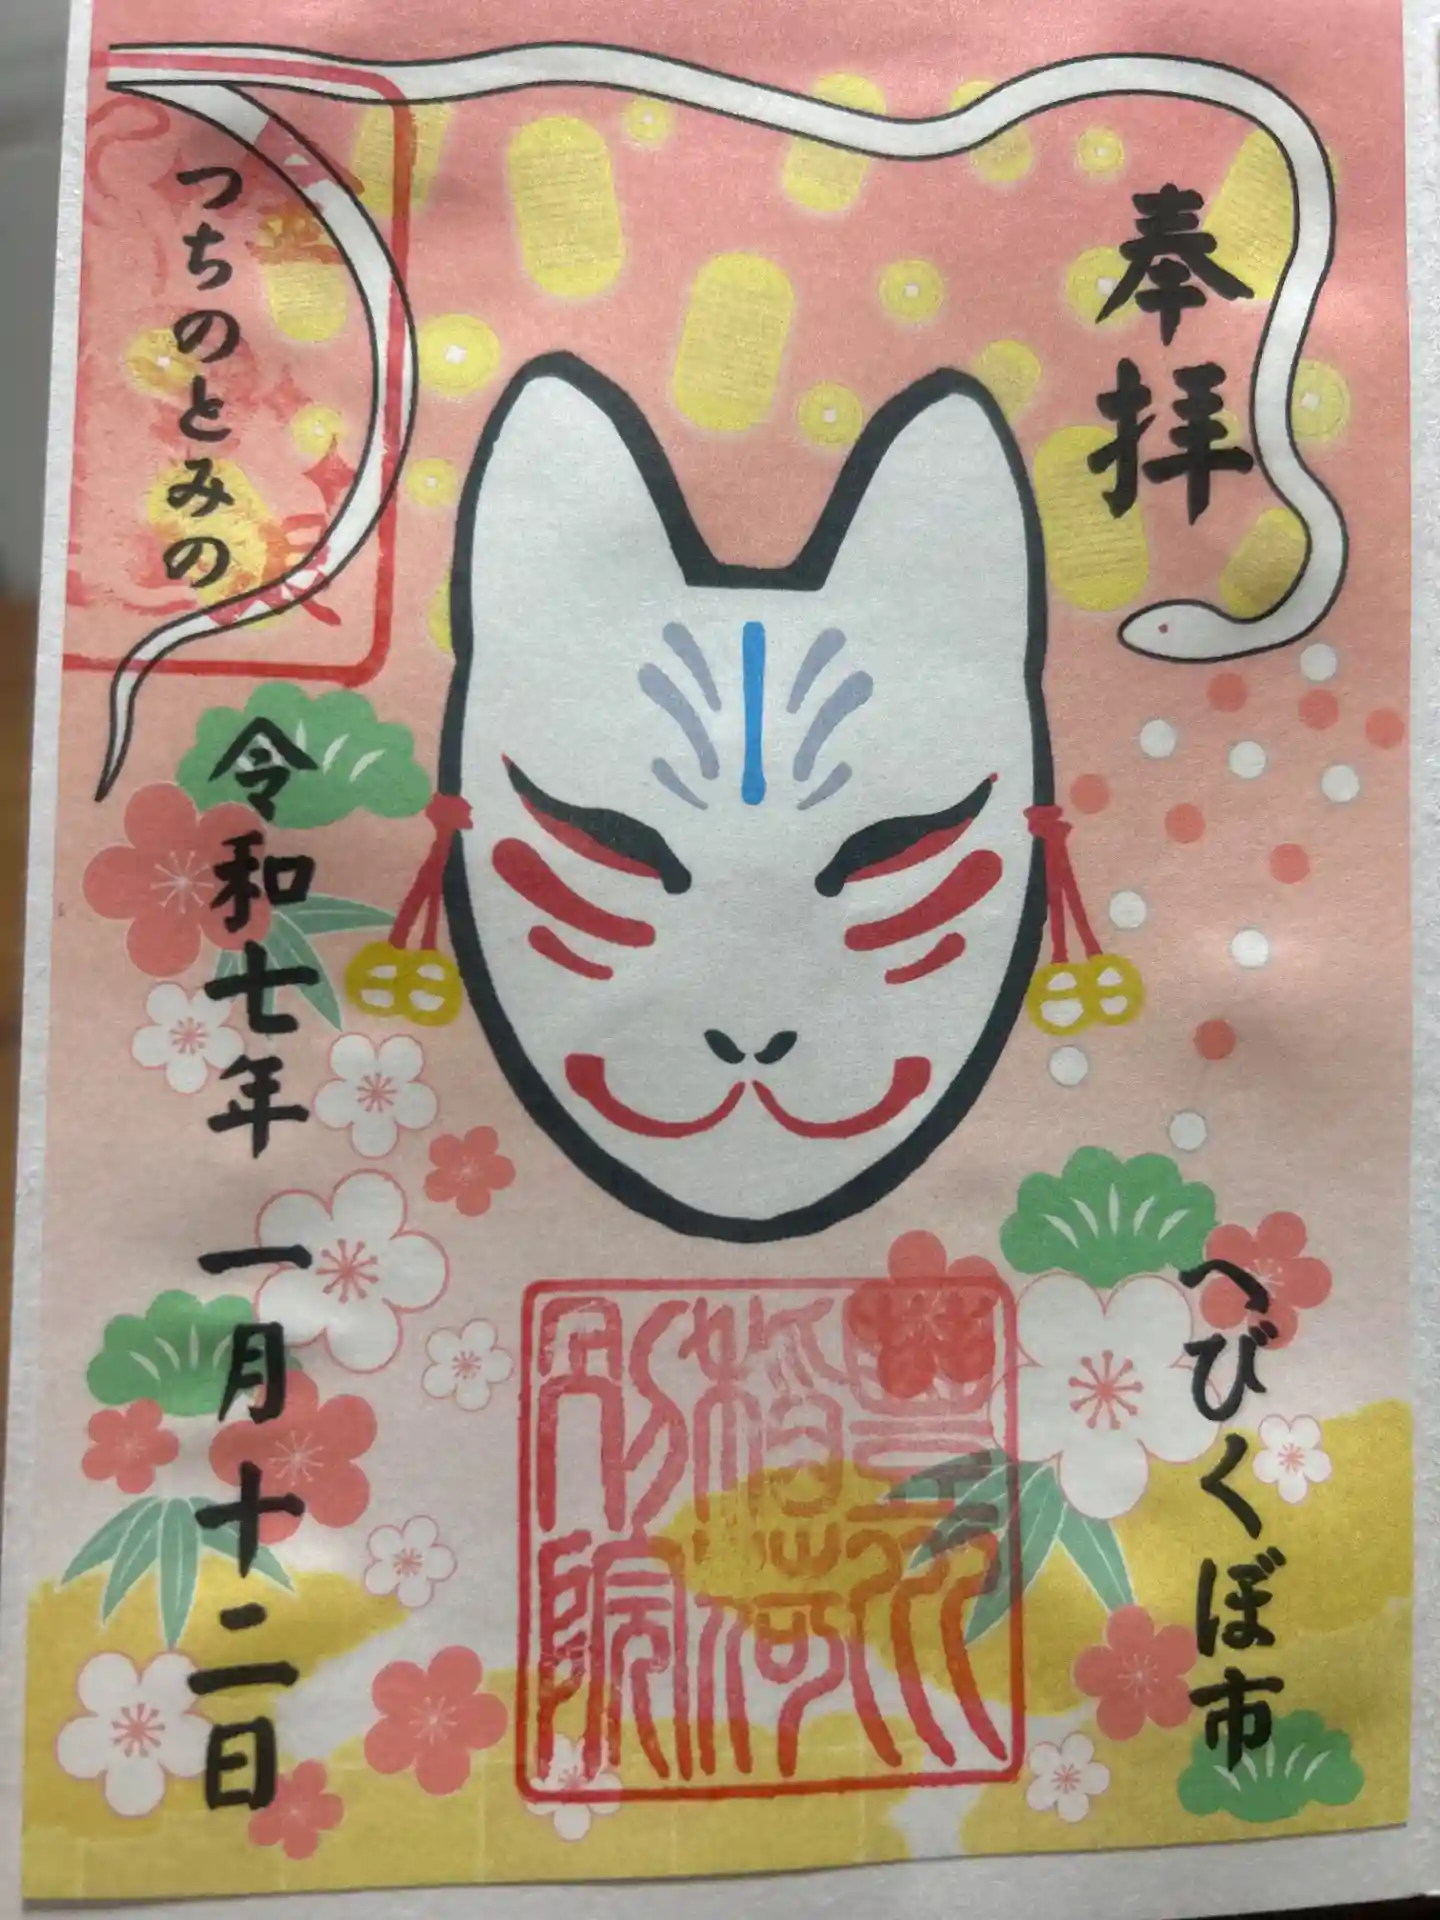 奉拝
へびくぼ市
豊川
稲荷
院
つちのとみの
令和七年 一月十二日